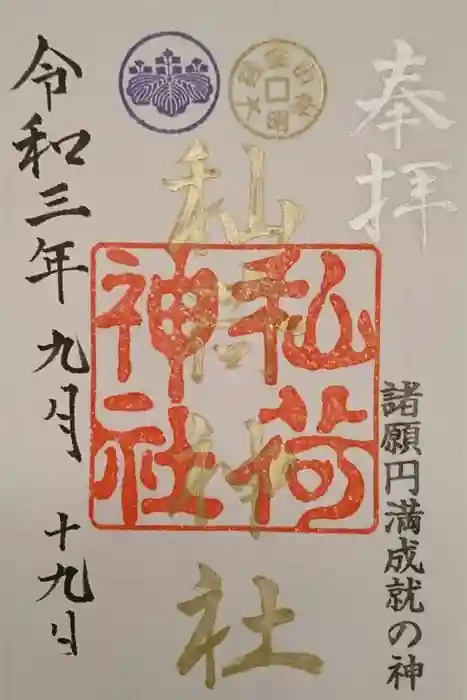 奉拝
諸願円満成就の神
秈荷神社
秈荷
神社
令和三年 九月 十九日